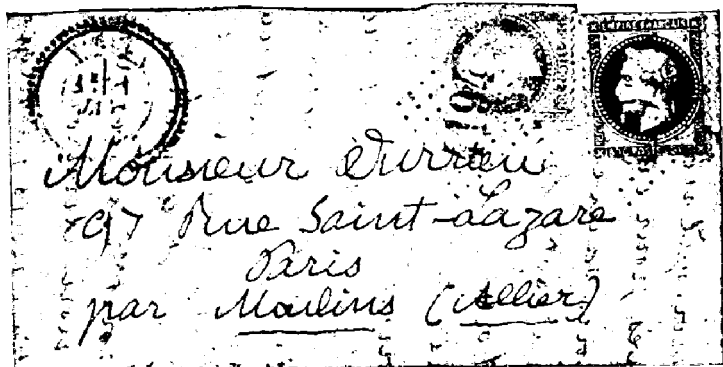 Monsieur Durrieu
97 Rue Saint-Lazare
Paris
par Moulins (Allier)